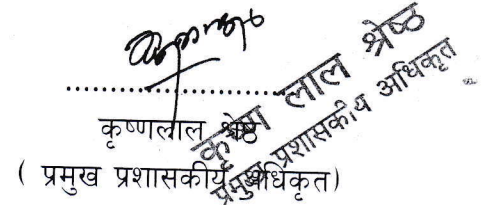 कृष्णलाल श्रेष्ठ
( प्रमुख प्रशासकीय अधिकृत)
कृष्ण लाल श्रेष्ठ
प्रमुख प्रशासकीय अधिकृत